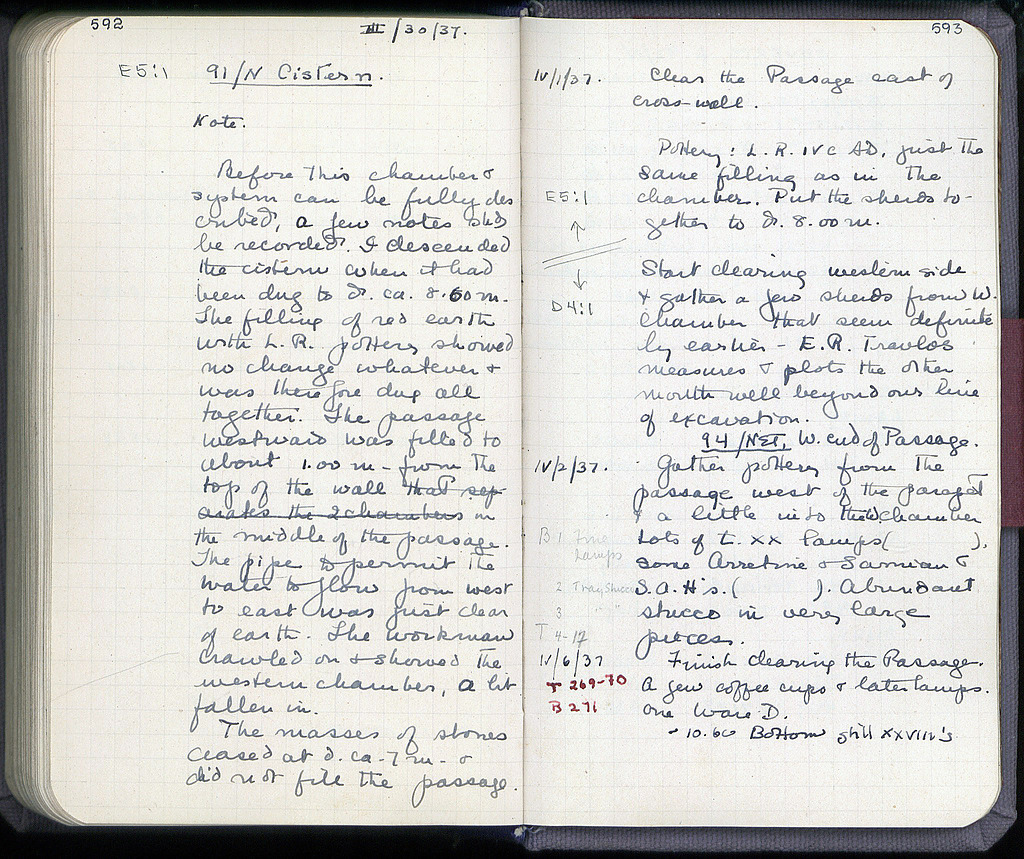 592
III/30/37.
E5:1 91/N Cistern.
Note.
Before this chamber &
system can be fully des
cribed, a few notes shd
be recorded. I descended
the cistern when it had
been dug to d. ca. 8.60 m.
The filling of red earth
with L.R. pottery showed
no change whatever &
was therefore dug all
together. The passage
westward was filled to
about 1.00 m - from the
top of the wall that sep-
arates the 2 chambers in
the middle of the passage.
The pipe to permit the
water to flow from west
to east was just clear
of earth. The workman
crawled on & showed the
western chamber, a bit
fallen in.
The masses of stones
ceased at d. ca - 7 m - &
did not fill the passage.
593
IV/1/37. Clear the Passage east of
cross-wall.
Pottery: L.R. IVc AD, just the
same filling as in the
E5:1 chamber. Put the sherds to-
↑ gether to d. 8.00 m.
Start clearing western side
↓ & gather a few sherds from W.
D4:1 chamber that seem definite
ly earlier - E.R. Travlos
measures & plots the other
mouth well beyond our line
of excavation.
94/NET, W. end of Passage.
IV/2/37. Gather pottery from the
passage west of the parapet
& a little into the W. chamber
B 1 Fine Lamps Lots of t. XX lamps( ),
some Arretine & Samian &
2 Tray Stucco S.A.H's.( ). Abundant
3 " " stucco in very large
T 4-12 pieces.
IV/6/37 Finish clearing the Passage.
T 269-70 A few coffee cups & later lamps.
B 271 One Ware D.
- 10.60 Bottom still XXVIII's